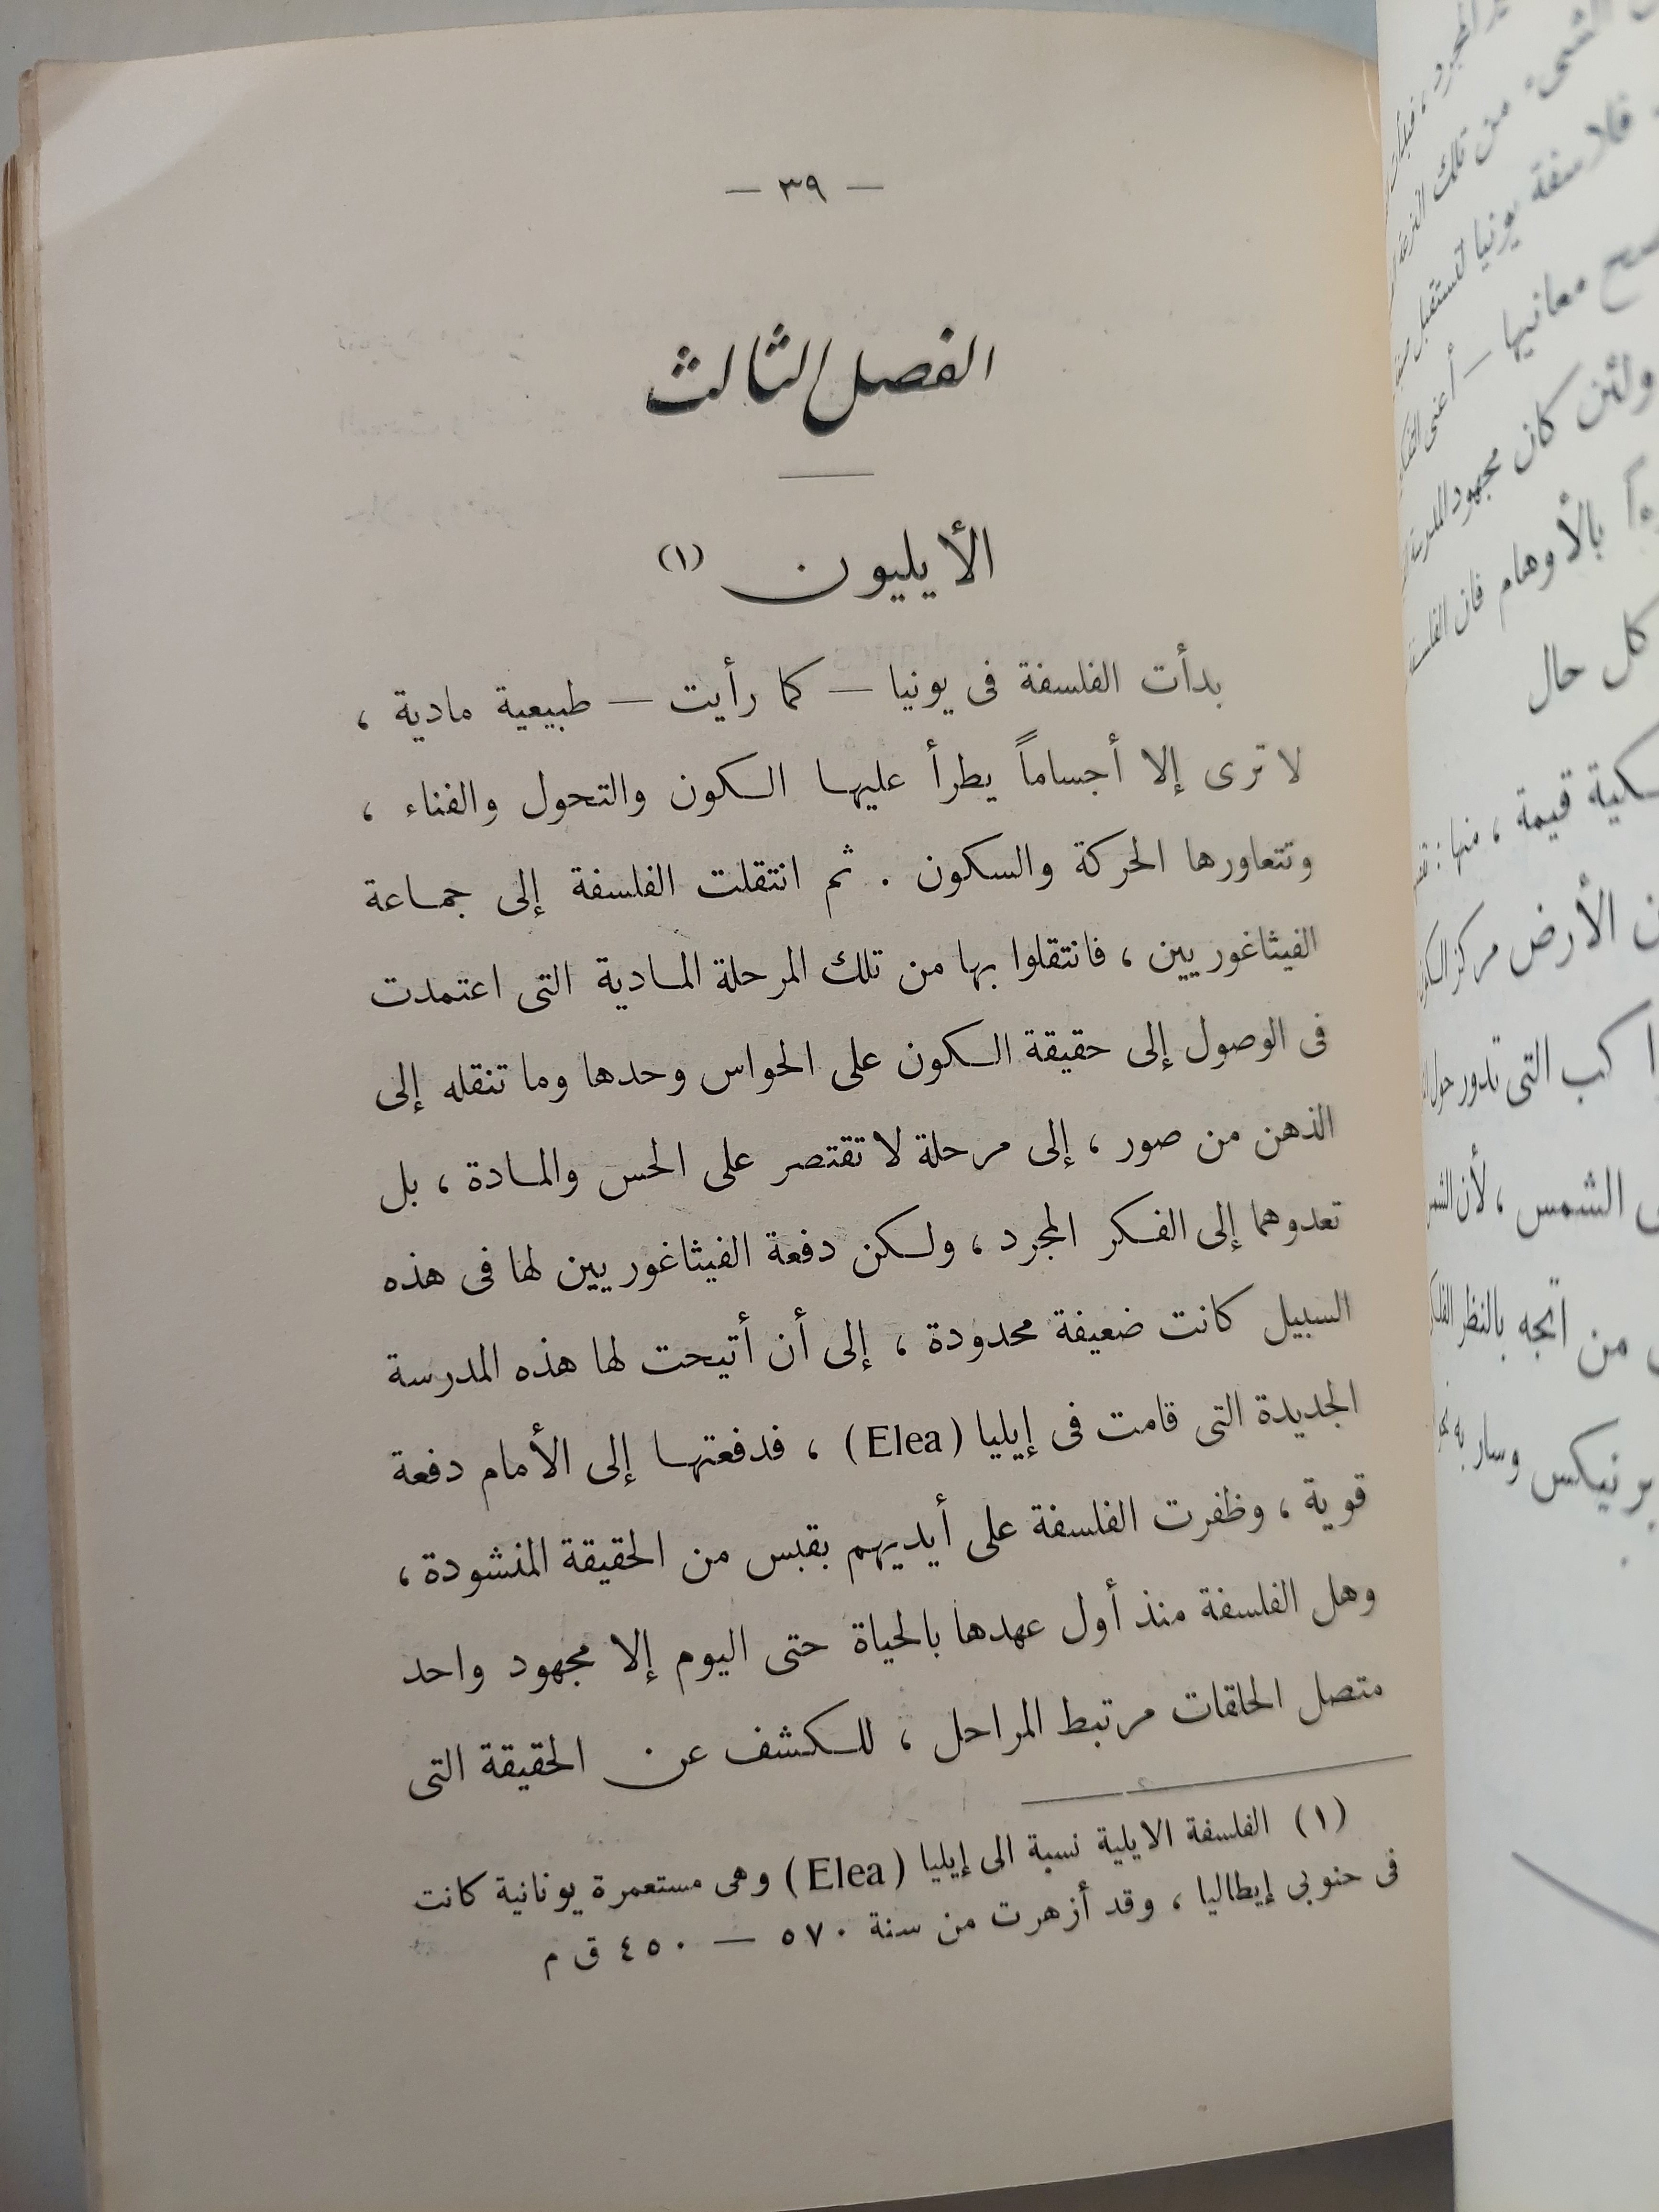 — ٣٩ —
الفصل الثالث
الأيليون (١)
بدأت الفلسفة فى يونيا — كما رأيت — طبيعية مادية ،
لا ترى إلا أجساماً يطرأ عليها الكون والتحول والفناء ،
وتتعاورها الحركة والسكون . ثم انتقلت الفلسفة إلى جماعة
الفيثاغوريين ، فانتقلوا بها من تلك المرحلة المادية التى اعتمدت
فى الوصول إلى حقيقة الكون على الحواس وحدها وما تنقله إلى
الذهن من صور ، إلى مرحلة لا تقتصر على الحس والمادة ، بل
تعدوهما إلى الفكر المجرد ، ولكن دفعة الفيثاغوريين لها فى هذه
السبيل كانت ضعيفة محدودة ، إلى أن أتيحت لها هذه المدرسة
الجديدة التى قامت فى إيليا (Elea) ، فدفعتها إلى الأمام دفعة
قوية ، وظفرت الفلسفة على أيديهم بقبس من الحقيقة المنشودة ،
وهل الفلسفة منذ أول عهدها بالحياة حتى اليوم إلا مجهود واحد
متصل الحلقات مرتبط المراحل ، للكشف عن الحقيقة التى
(١) الفلسفة الايلية نسبة الى إيليا (Elea) وهى مستعمرة يونانية كانت
فى حنوبى إيطاليا ، وقد أزهرت من سنة ٥٧٠ — ٤٥٠ ق م
المجرد ،
الشىء من تلك
فلاسفة يونيا
معانيها — أعنى
ولئن كان مجهود
بالأوهام فان
كل حال
قيمة ، منها :
الأرض مركز
التى تدور حول
الشمس ، لأن
من اتجه بالنظر
وسار به